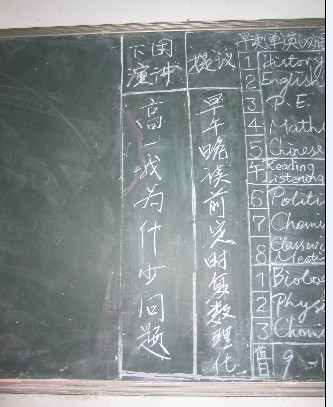 下国
演讲
高一我为什少问题
提议
早午晚读前定时复数理化
早读(单)英(双)语
1 History
2 English
3 P.E.
4 Maths
5 Chinese
午 Reading
Listening
6 Politi
7 Chemi
8
1 Biolog
2 Physi
3 Chemi
值日 9